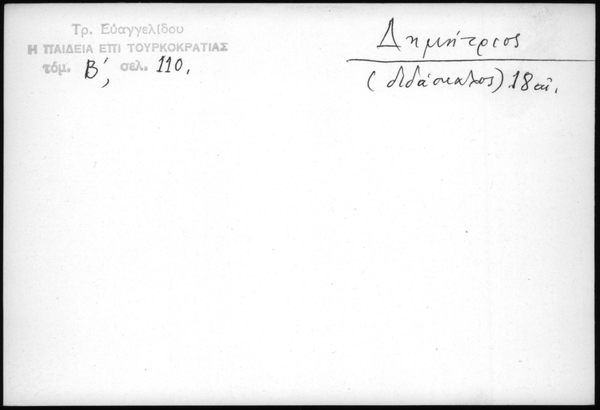 Τρ. Εὐαγγελίδου
Η ΠΑΙΔΕΙΑ ΕΠΙ ΤΟΥΡΚΟΚΡΑΤΙΑΣ
τόμ. Β΄, σελ. 110.
Δημήτριος
(διδάσκαλος) 18 αἰ.